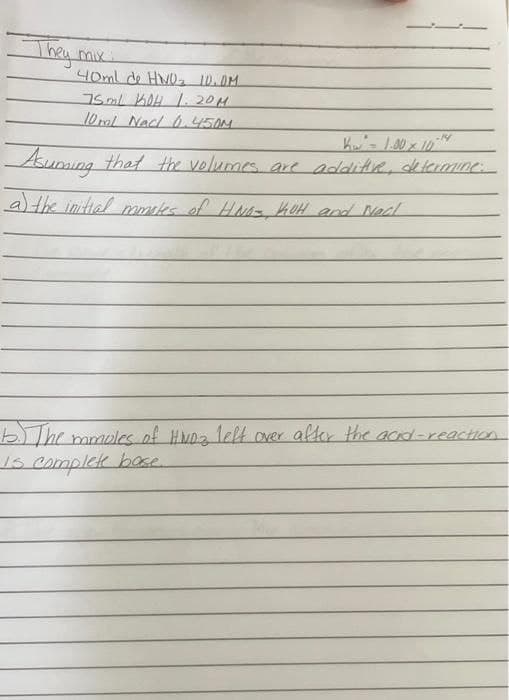 They mix:
40ml de HNO3 10.0M
75mL KOH 1.20M
10ml Nacl 0.450M
Kw = 1.00 x 10^-14
Asuming that the volumes are additive, determine:
a) the initial mmoles of HNO3, KOH and Nacl
b.) The mmoles of HNO3 left over after the acid-reaction
is complete base.